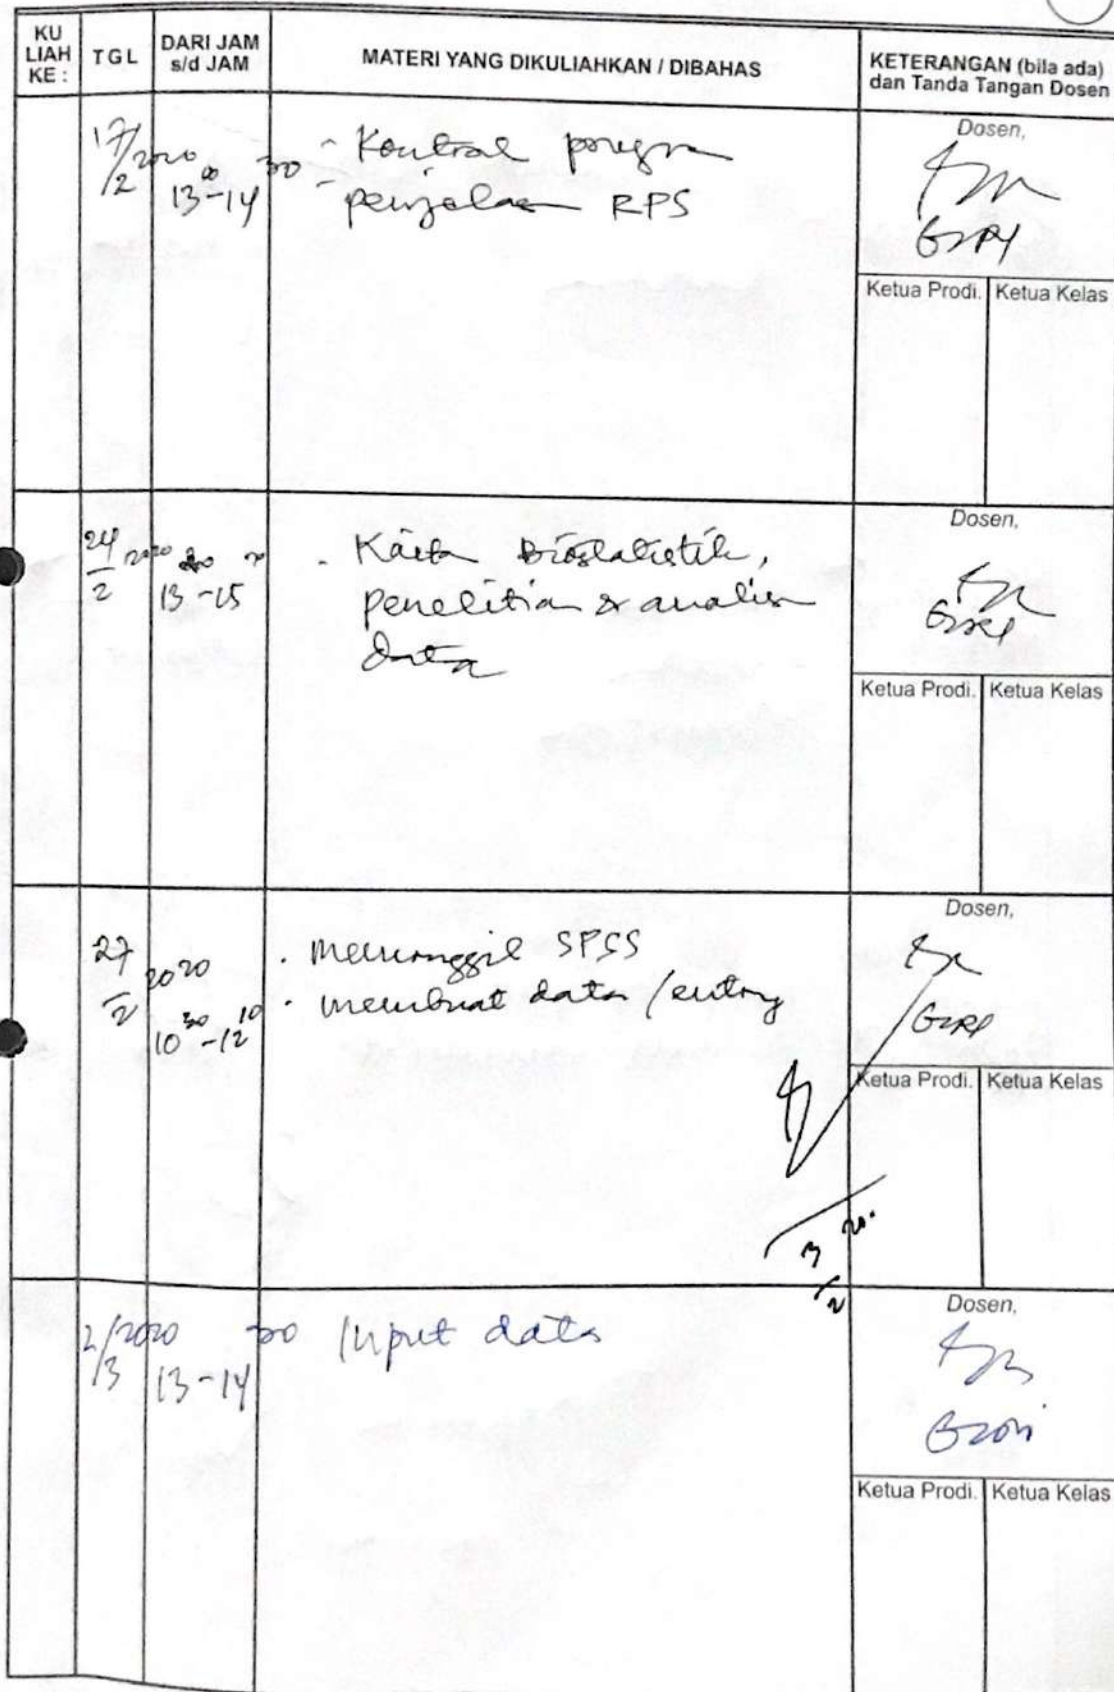 KU LIAH KE :
TGL
DARI JAM s/d JAM
MATERI YANG DIKULIAHKAN / DIBAHAS
KETERANGAN (bila ada) dan Tanda Tangan Dosen
17/2 2020
13 00 - 14 30
- Kontrak
- penjelasan RPS
Dosen,
Ketua Prodi.
Ketua Kelas
24/2 2020
13 - 15
- Kaitan Biostatistik,
penelitian & analisis
data
Dosen,
Ketua Prodi.
Ketua Kelas
27/2 2020
10 30 - 12 10
. Memanggil SPSS
. membuat data / entry
Dosen,
Ketua Prodi.
Ketua Kelas
2/3 2020
13 - 14 30
Input data
Dosen,
Ketua Prodi.
Ketua Kelas